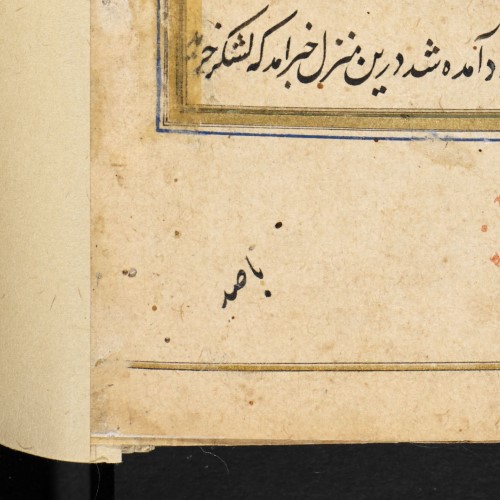 د آمده شد درین منزل خبر امد که لشکر
با صد